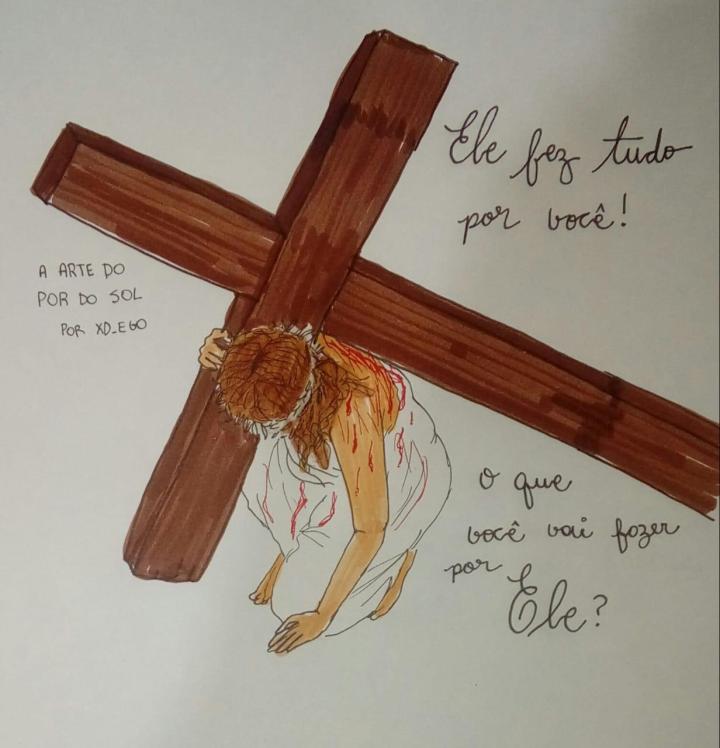 Ele fez tudo
por você!
A ARTE DO
POR DO SOL
POR XD_EGO
O que
você vai fazer
por
Ele?